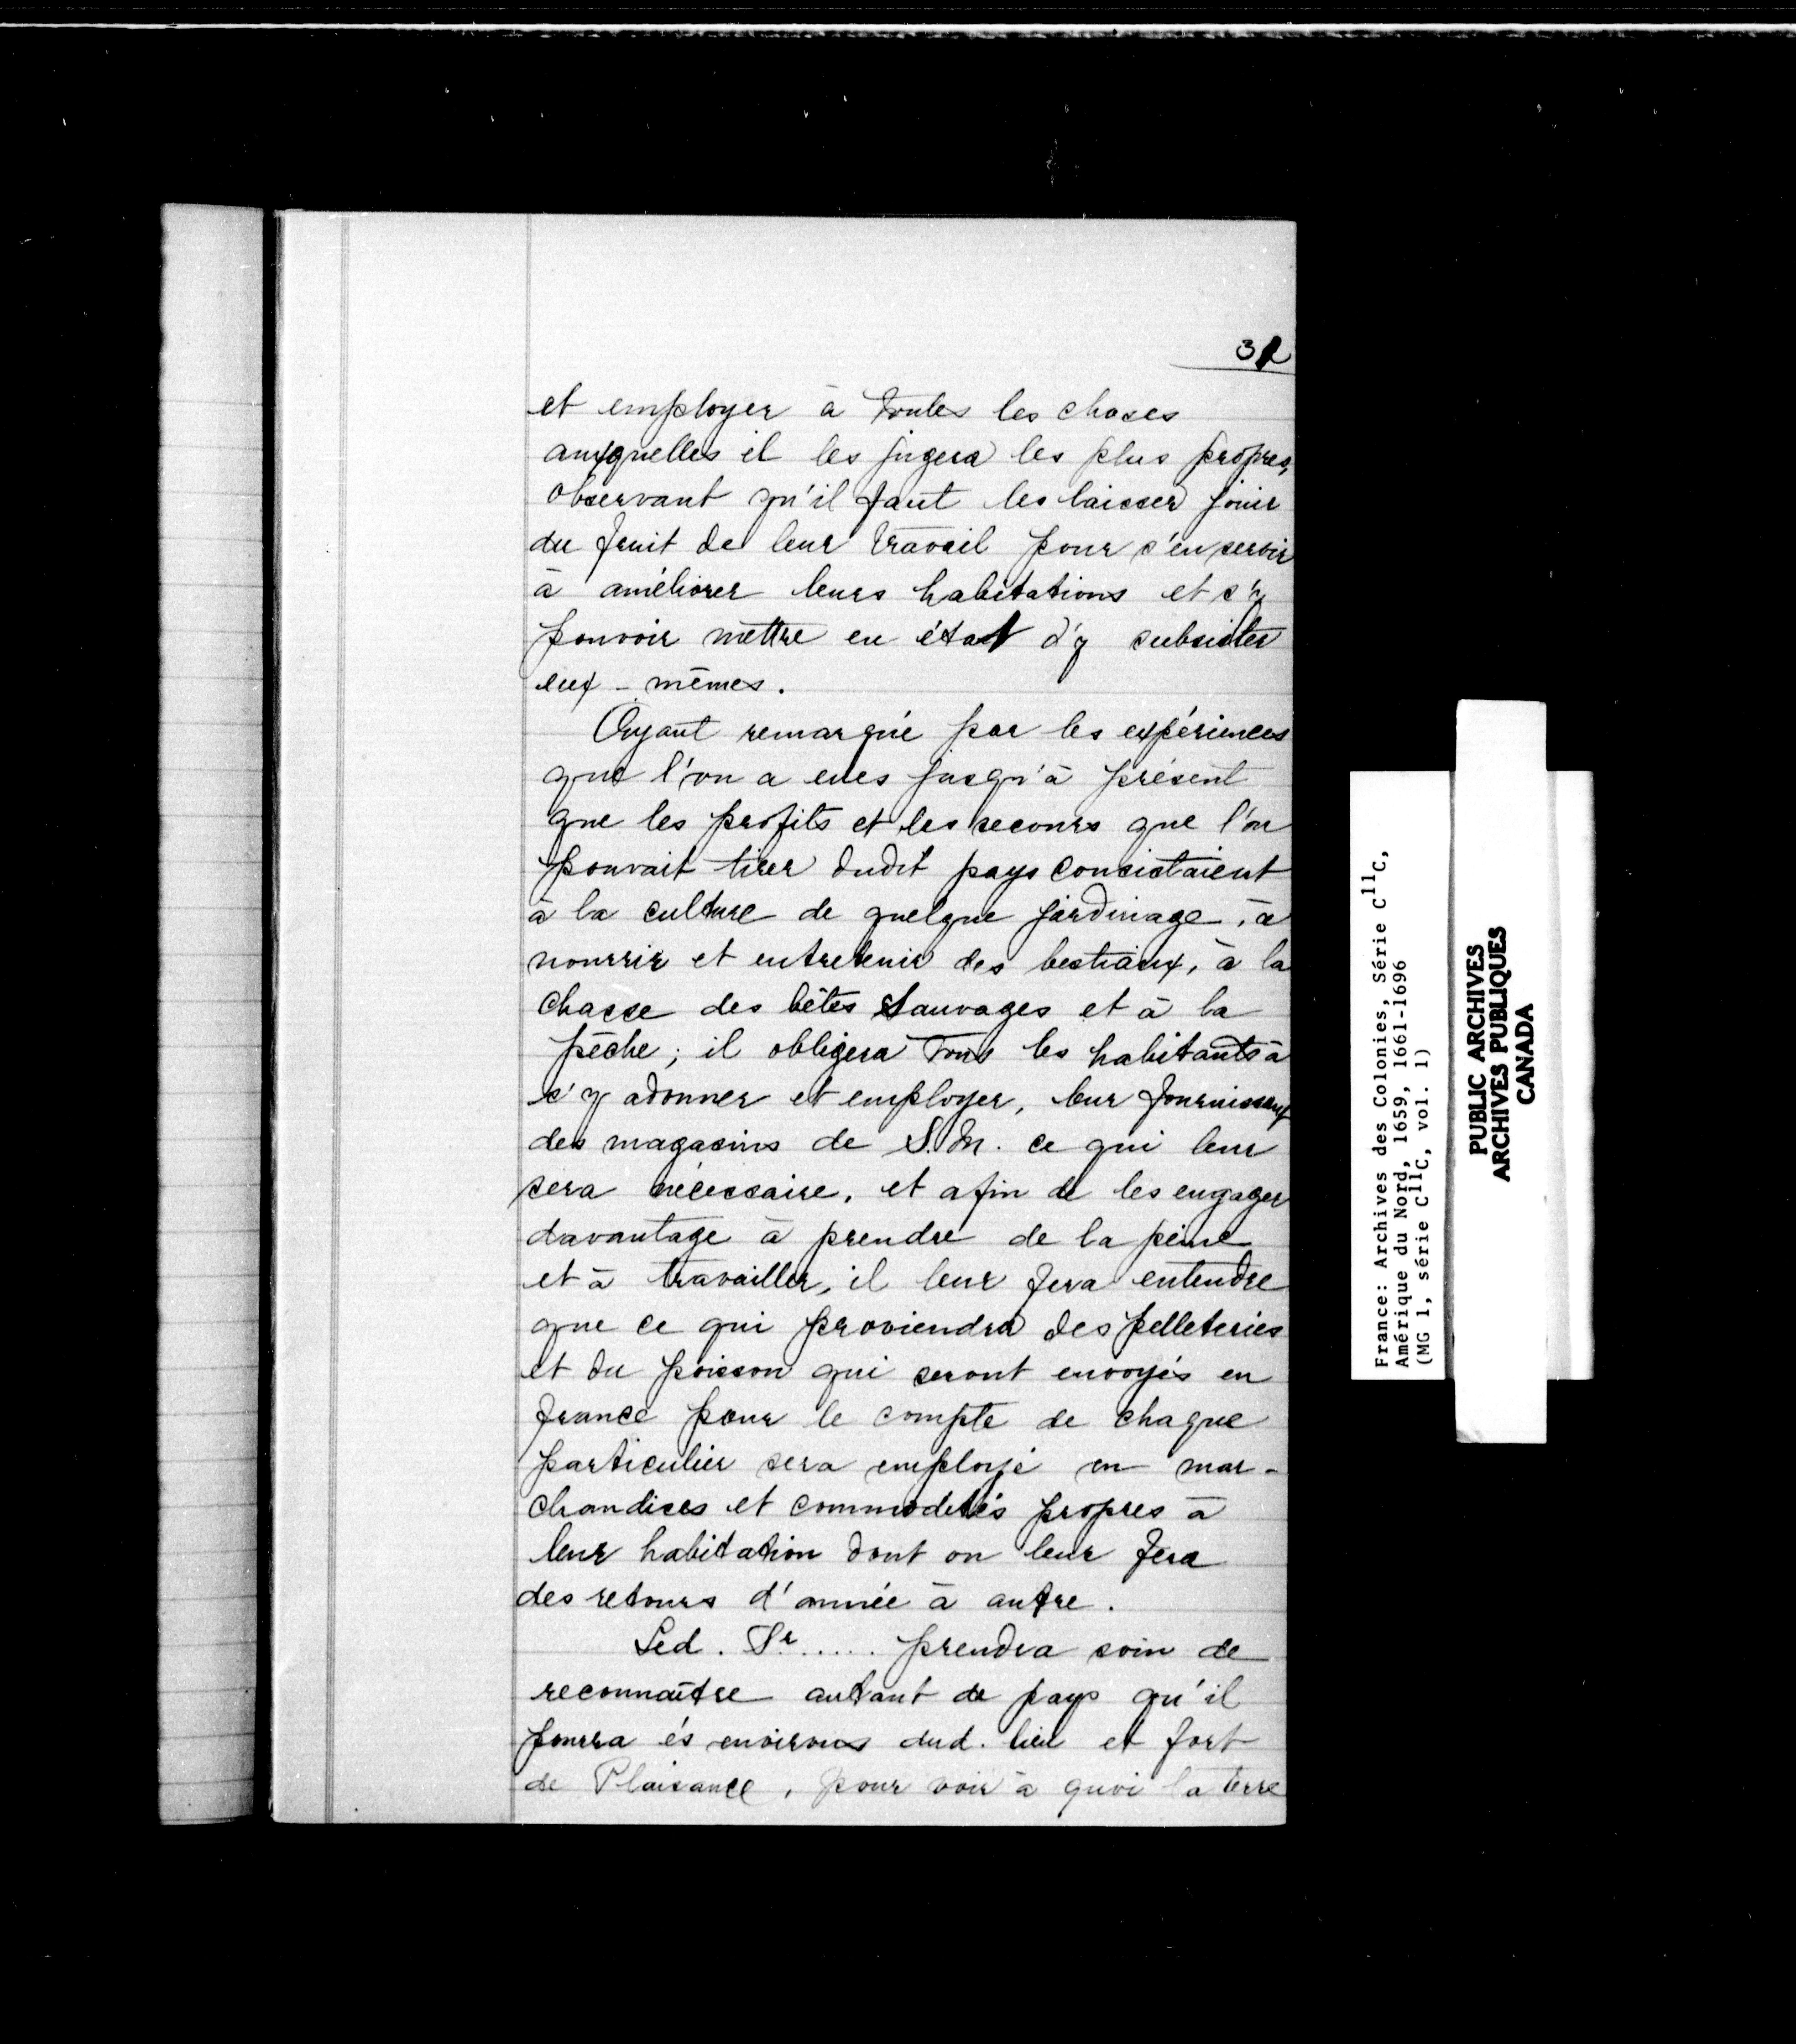 32
et employer à toutes les choses
auxquelles il les jugera les plus propres,
observant qu'il faut les laisser jouir
du fruit de leur travail pour s'en servir
à améliorer leurs habitations et s'y
pouvoir mettre en état d'y subsister
eux-mêmes.
Ayant remarqué par les expériences
que l'on a eues jusqu'à présent
que les profits et les secours que l'on
pouvait tirer dudit pays consistaient
à la culture de quelque jardinage, à
nourrir et entretenir des bestiaux, à la
chasse des bêtes sauvages et à la
pêche; il obligera tous les habitants à
s'y adonner et employer, leur fournissant
des magasins de S.M. ce qui leur
sera nécessaire, et afin de les engager
davantage à prendre de la peine
et à travailler, il leur fera entendre
que ce qui proviendra des pelleteries
et du poisson qui seront envoyés en
france pour le compte de chaque
particulier sera employé en mar-
chandises et commodités propres à
leur habitation dont on leur fera
des retours d'année à autre.
Led. Sr..... prendra soin de
reconnaître autant de pays qu'il
pourra és environs dud. lieu et fort
de Plaisance, pour voir à quoi la terre
France: Archives des Colonies, Série C11C,
Amérique du Nord, 1659, 1661-1696
(MG 1, série C11C, vol. 1)
PUBLIC ARCHIVES
ARCHIVES PUBLIQUES
CANADA